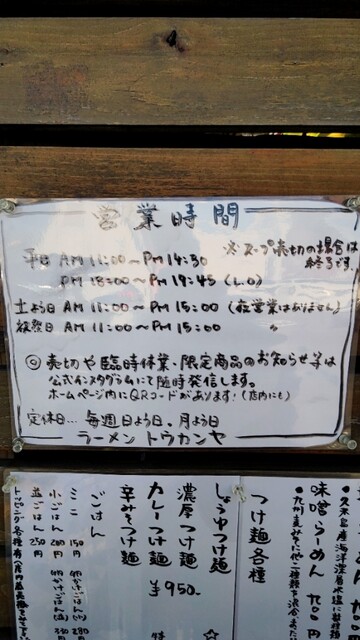 営業時間
※スープ売切の場合は
終了です。
平日 AM 11:00〜PM 14:30
PM 18:00〜PM 19:45 (L.O)
土よう日 AM 11:00〜PM 15:00 (夜営業はありません)
祝祭日 AM 11:00〜PM 15:00 〃
◎ 売切や臨時休業・限定商品のお知らせ等は
公式インスタグラムにて随時発信します。
ホームページ内にQRコードがあります!(店内にも)
定休日… 毎週日よう日。月よう日
ラーメン トウカンヤ
味噌らーめん
つけ麺各種
しょうゆつけ麺
濃厚つけ麺
カレーつけ麺 ¥950
辛みそつけ麺
ごはん
ミニ 150円
小ごはん 200円
並ごはん 250円